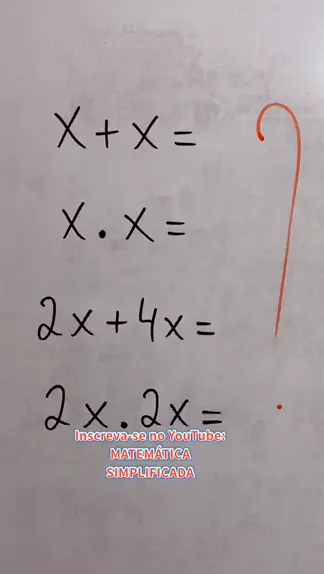 x + x =
x . x =
2x + 4x =
2x . 2x =
?
Inscreva-se no YouTube:
MATEMÁTICA
SIMPLIFICADA